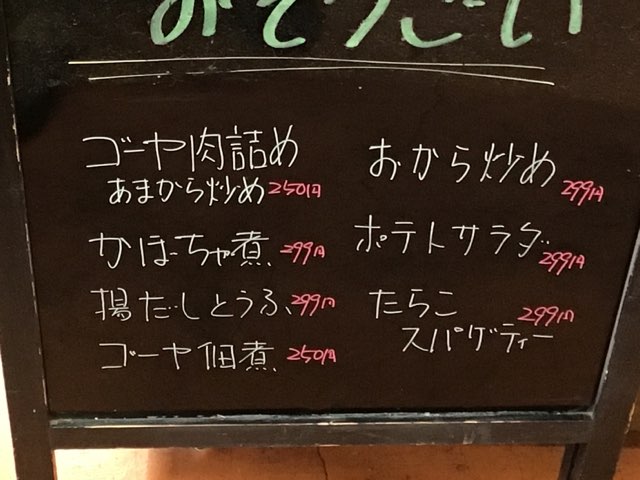 おそうざい
ゴーヤ肉詰め
あまから炒め 250円
かぼちゃ煮 299円
揚だしとうふ 299円
ゴーヤ佃煮 250円
おから炒め 299円
ポテトサラダ 299円
たらこ 299円
スパゲティー